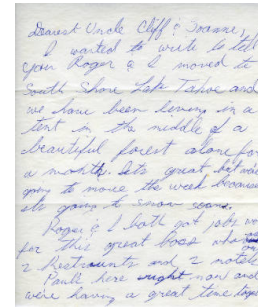 Dearest Uncle Cliff & Joanne,
I wanted to write & tell
you Roger & I moved to
South Shore Lake Tahoe and
we have been living in a
tent in the middle of a
beautiful forest alone for
a month. Its great, but we're
going to move the week because
its going to snow soon.
Roger & I both got jobs
for this great boss who
2 Restraunts and 2 motels
Paul's here right now and
we're having a great time